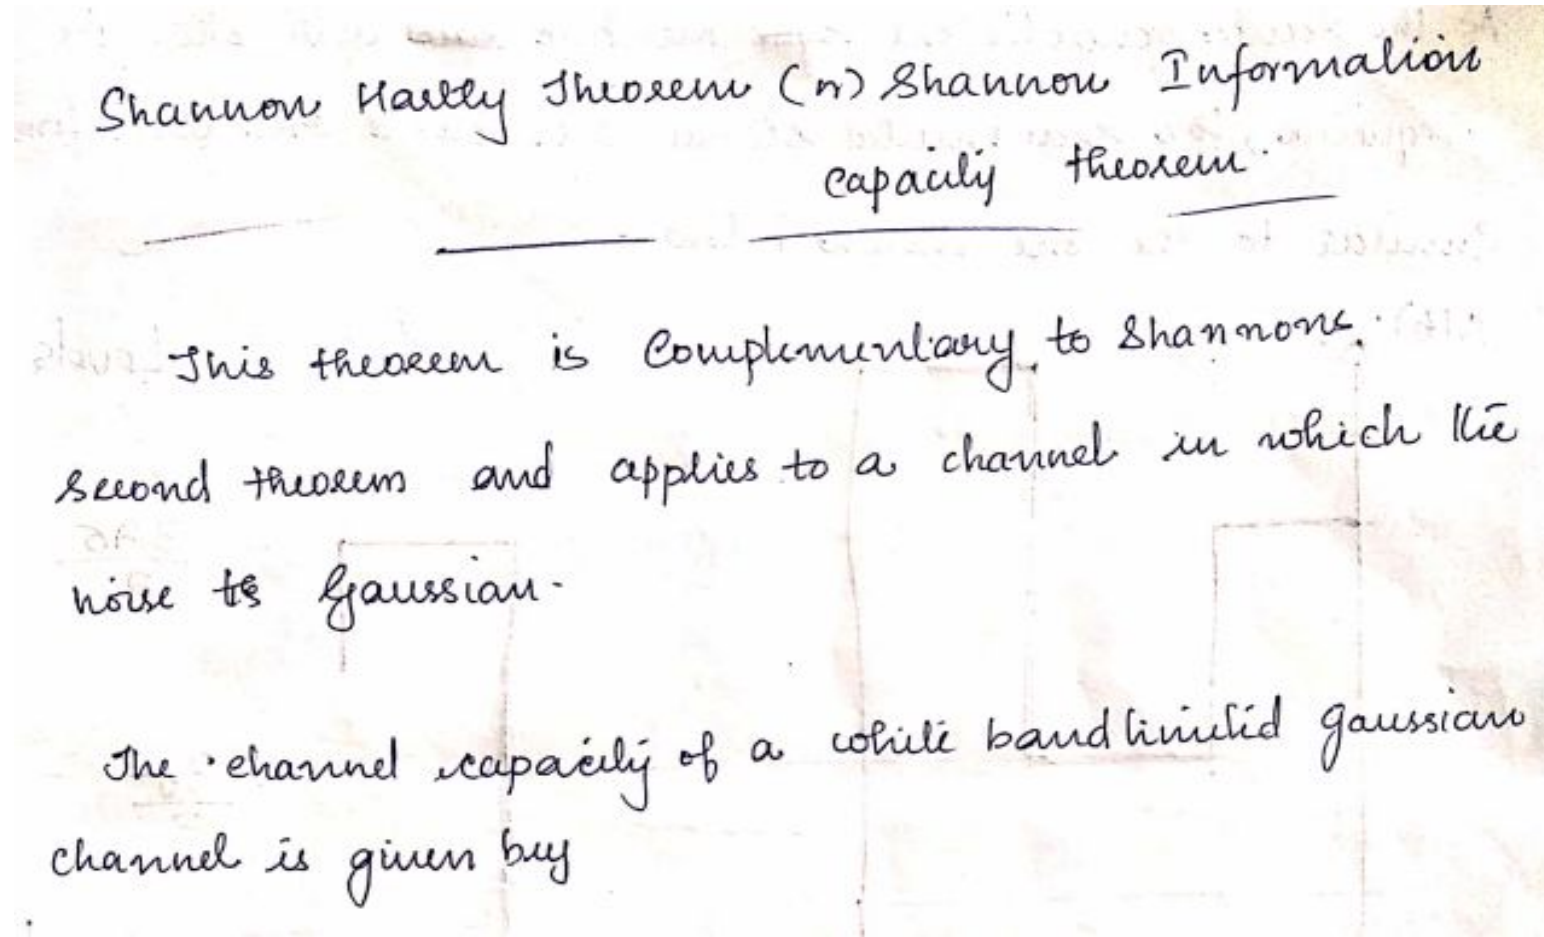 Shannon Hartley Theorem (or) Shannon Information
capacity theorem.
This theorem is Complementary to Shannons
second theorem and applies to a channel in which the
noise is Gaussian.
The channel capacity of a white bandlimited gaussian
channel is given by